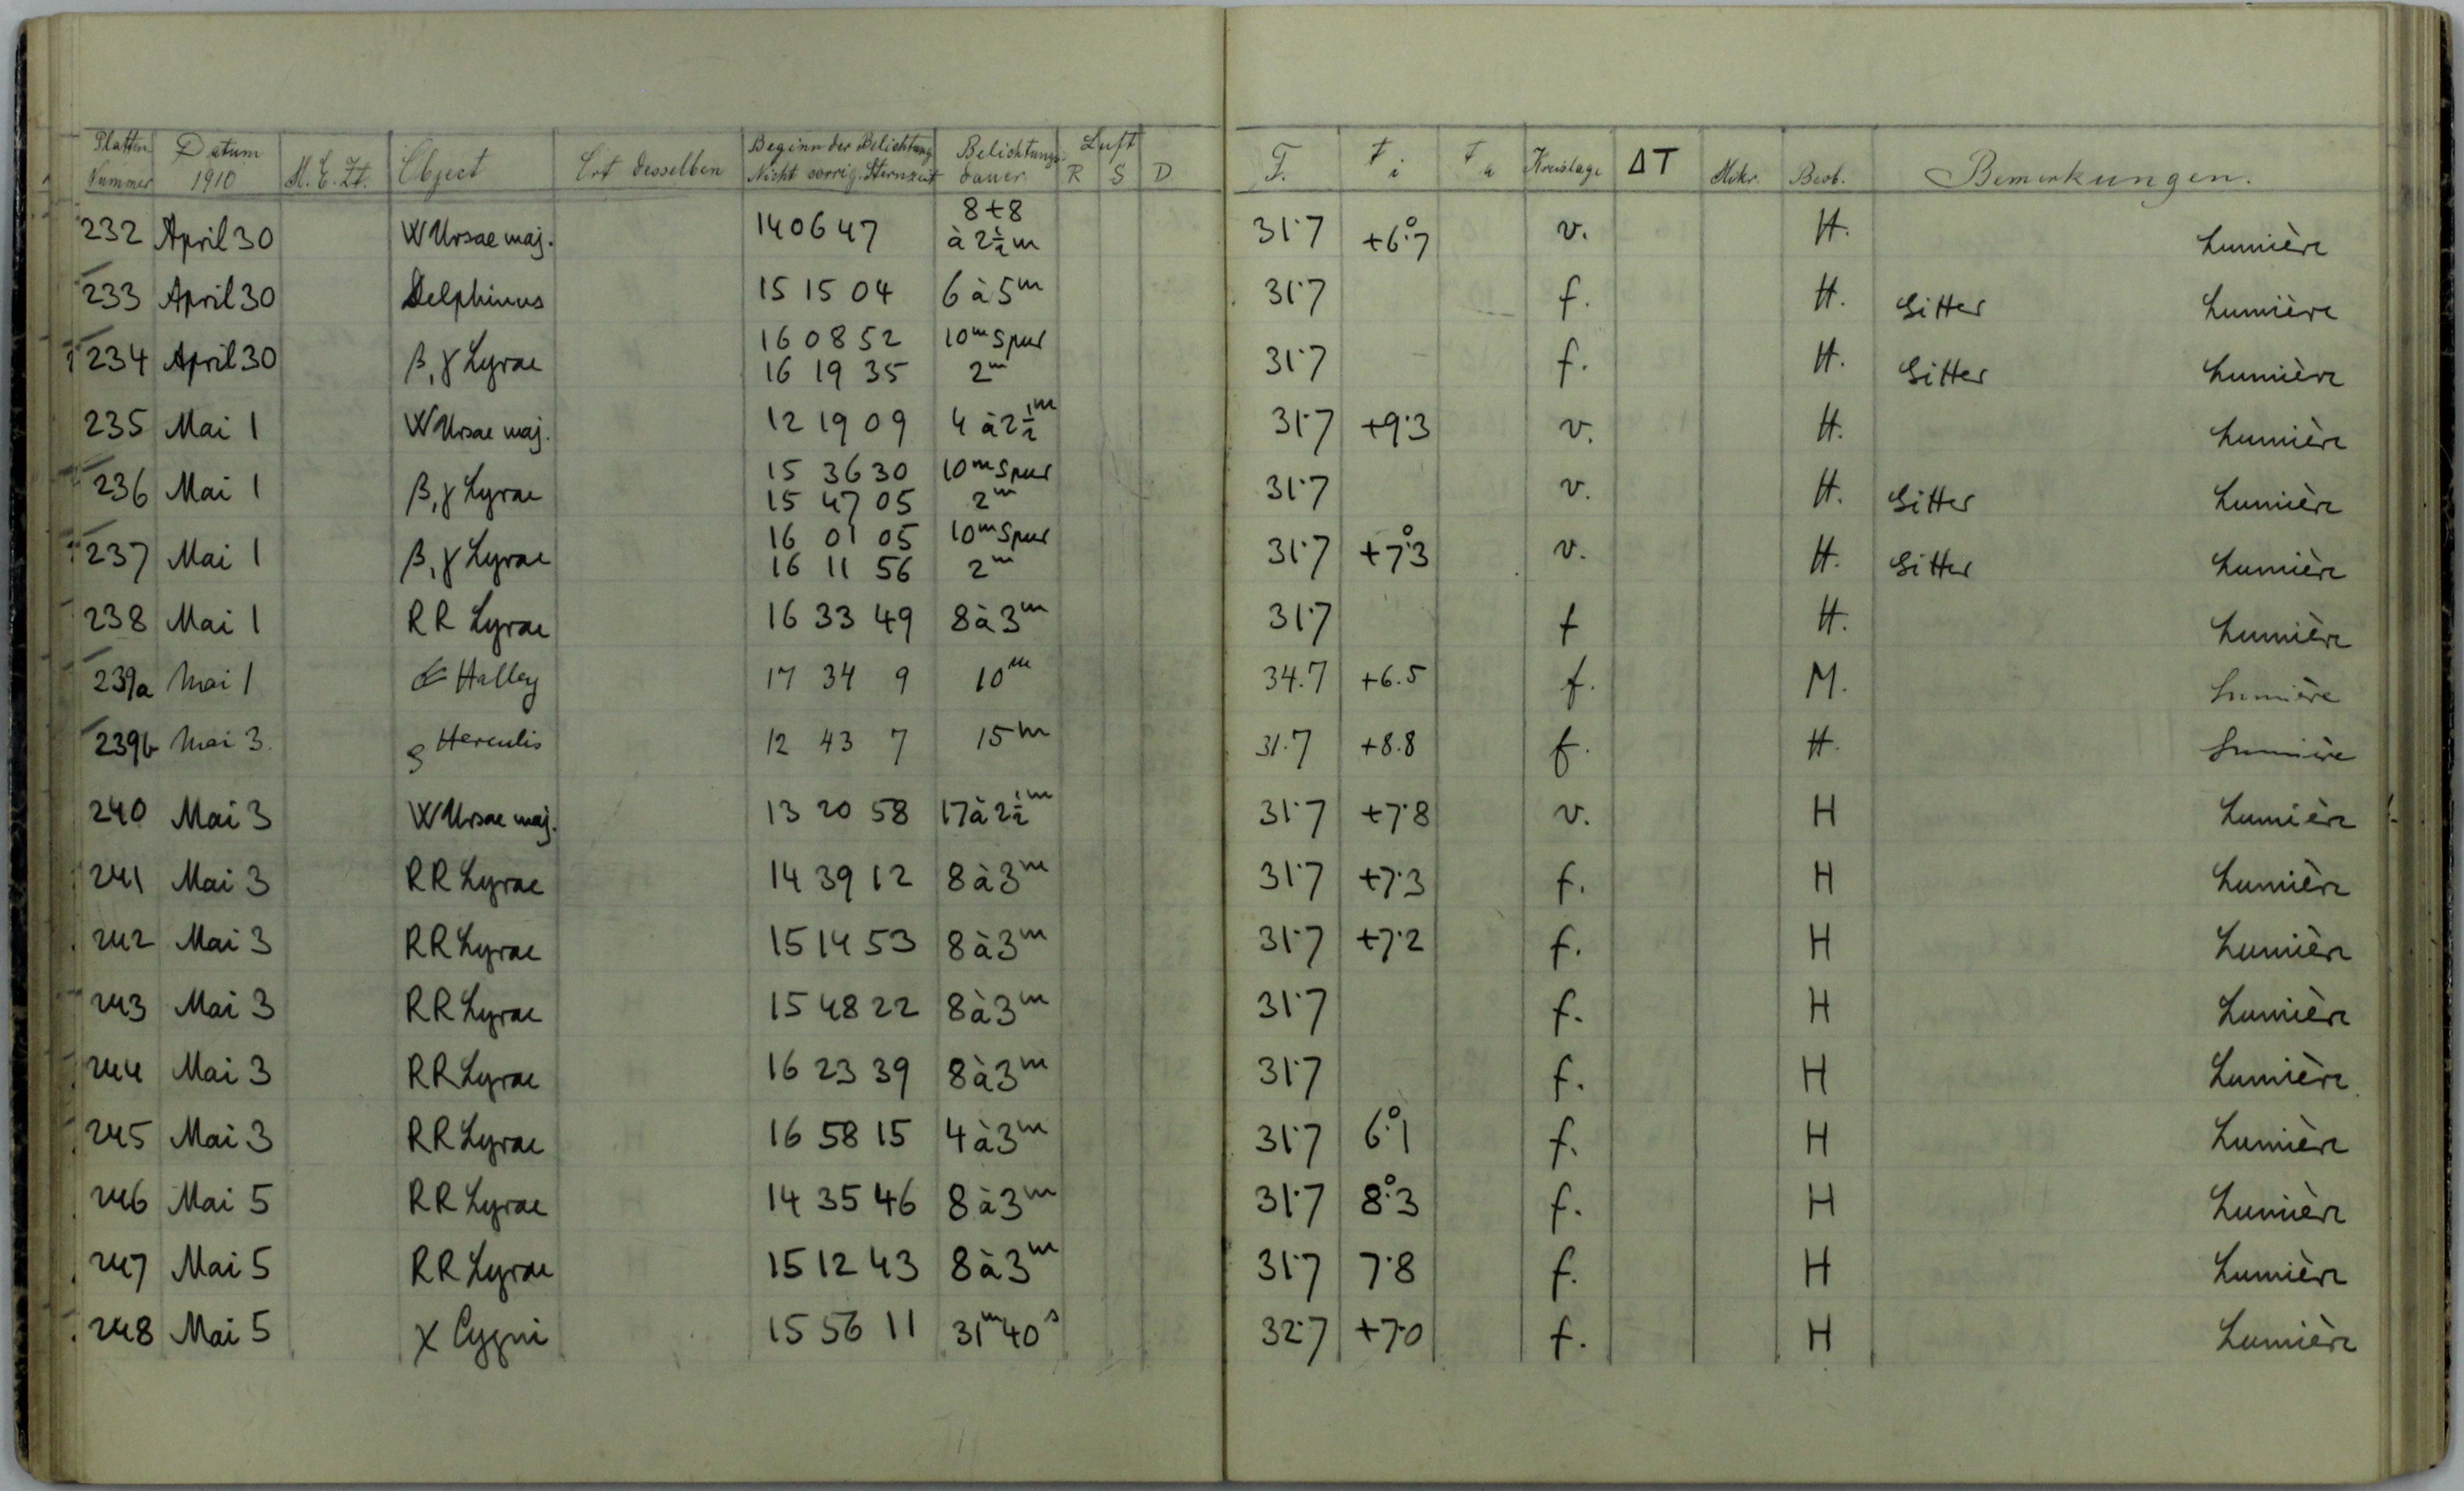 Platten Nummer Datum 1910 M. E. Zt. Object Ort desselben Beginn der Belichtung Nicht corrig. Sternzeit Belichtungsdauer Luft R S D F. t i t a Kreislage ΔT Mikr. Beob. Bemerkungen.
232 April 30 W Ursae maj. 14 06 47 8+8 à 2½ m 31·7 +6°.7 v. H. Lumière
233 April 30 Delphinus 15 15 04 6 à 5m 31·7 f. H. Gitter Lumière
234 April 30 β, γ Lyrae 16 08 52 10m Spur 31·7 f. H. Gitter Lumière
16 19 35 2m
235 Mai 1 W Ursae maj. 12 19 09 4 à 2½m 31·7 +9·3 v. H. Lumière
236 Mai 1 β, γ Lyrae 15 36 30 10m Spur 31·7 v. H. Gitter Lumière
15 47 05 2m
237 Mai 1 β, γ Lyrae 16 01 05 10m Spur 31·7 +7°.3 v. H. Gitter Lumière
16 11 56 2m
238 Mai 1 RR Lyrae 16 33 49 8 à 3m 31·7 f H. Lumière
239a Mai 1 Halley 17 34 9 10m 34.7 +6.5 f. M. Lumière
239b Mai 3. Herculis 12 43 7 15m 31.7 +8.8 f. H. Lumière
240 Mai 3 W Ursae maj. 13 20 58 17 à 2½m 31·7 +7·8 v. H Lumière
241 Mai 3 RR Lyrae 14 39 12 8 à 3m 31·7 +7·3 f. H Lumière
242 Mai 3 RR Lyrae 15 14 53 8 à 3m 31·7 +7·2 f. H Lumière
243 Mai 3 RR Lyrae 15 48 22 8 à 3m 31·7 f. H Lumière
244 Mai 3 RR Lyrae 16 23 39 8 à 3m 31·7 f. H Lumière
245 Mai 3 RR Lyrae 16 58 15 4 à 3m 31·7 6°.1 f. H Lumière
246 Mai 5 RR Lyrae 14 35 46 8 à 3m 31·7 8°.3 f. H Lumière
247 Mai 5 RR Lyrae 15 12 43 8 à 3m 31·7 7·8 f. H Lumière
248 Mai 5 χ Cygni 15 56 11 31m 40s 32·7 +7·0 f. H Lumière